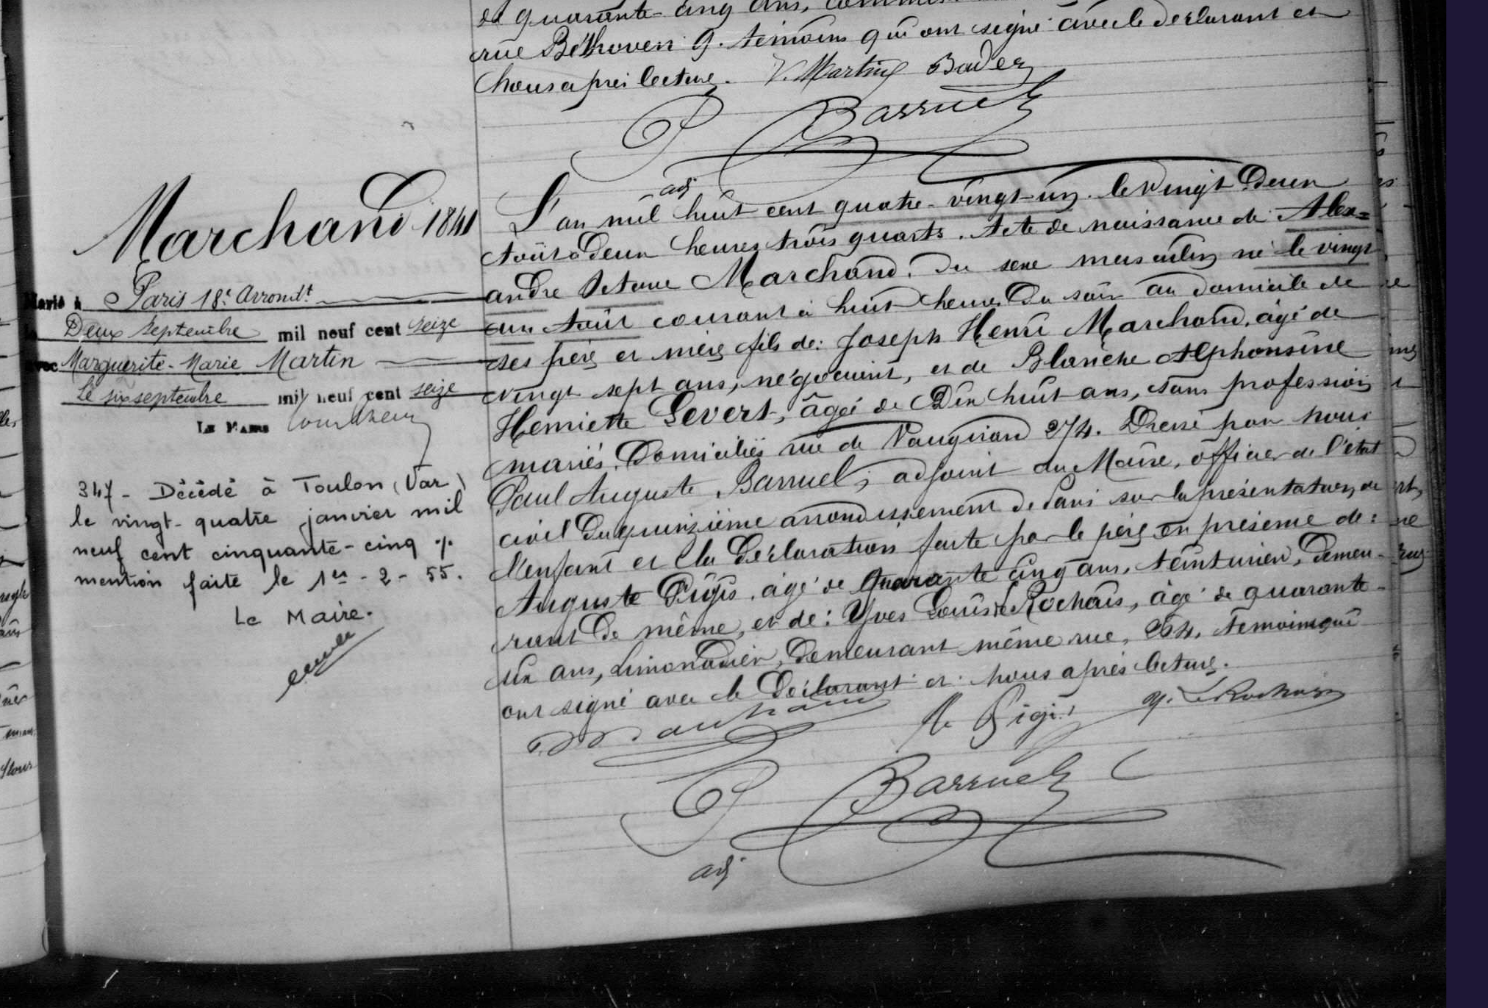 de quarante cinq ans,
rue Béthoven 9. témoins qui ont signé avec le déclarant et
nous après lecture. V. Martin Bader
P Barruel
adj
Marchand 1841
L'an mil huit cent quatre-vingt-un. le vingt Deux
Août à Deux heures trois quarts. Acte de naissance de Alex=
andre Octave Marchand. Du sexe masculin né le vingt
un Août courant à huit heures Du soir au domicile de
ses père et mère fils de: Joseph Henri Marchand, âgé de
vingt sept ans, négociant, et de Blanche Alphonsine
Henriette Levert, âgée de Dix huit ans, sans profession
mariés. Domiciliés rue de Vaugirard 274. Dressé par nous
Paul Auguste Barruel, adjoint au Maire, officier de l'état
civil du quinzième arrondissement de Paris sur la présentation de
l'enfant et la Déclaration faite par le père en présence de:
Auguste Pigis, âgé de quarante cinq ans, teinturier, demeu-
rant De même, et de: Yves Louis Le Rochais, âgé de quarante-
six ans, Limonadier, Demeurant même rue, 254, témoins qui
ont signé avec le Déclarant et nous après lecture.
Marié à Paris 18e Arrondt
le Deux Septembre mil neuf cent seize
avec Marguerite-Marie Martin
Le six septembre mil neuf cent seize
Le Maire
347 - Décédé à Toulon (Var)
le vingt-quatre janvier mil
neuf cent cinquante-cinq ./.
mention faite le 1er - 2 - 55.
Le Maire.
Marchand A. Pigis Y. Le Rochais
P Barruel
adj